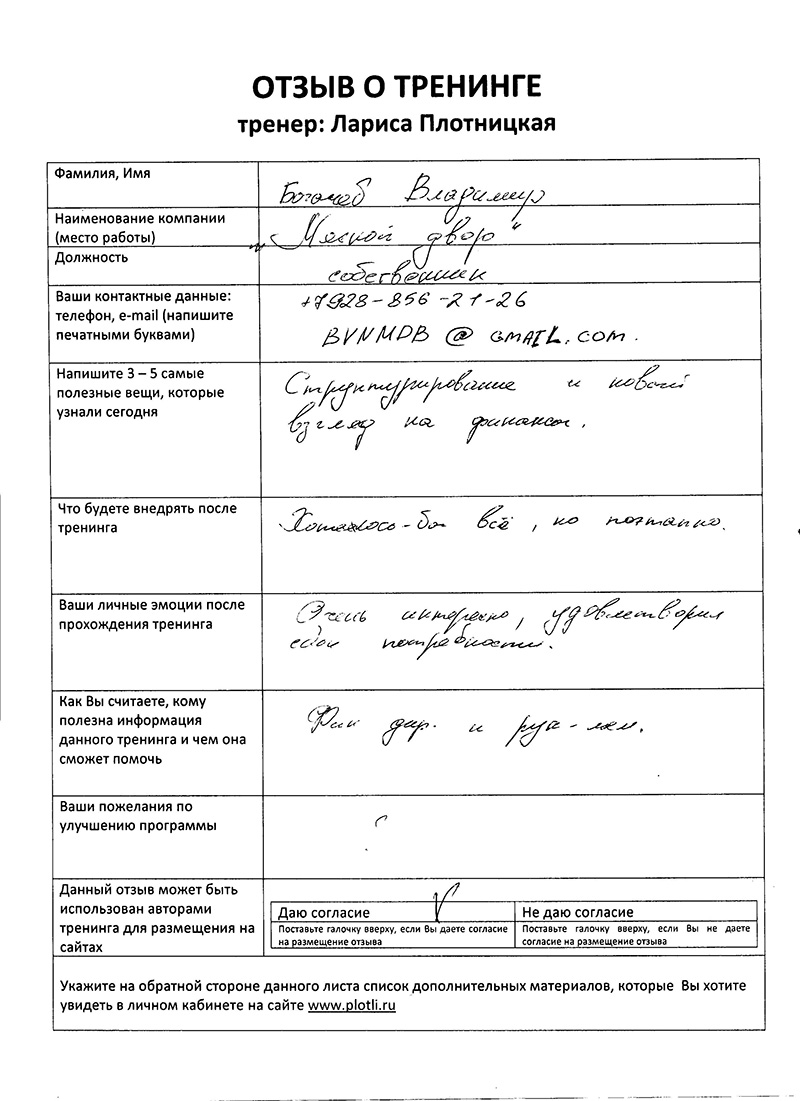 ОТЗЫВ О ТРЕНИНГЕ
тренер: Лариса Плотницкая
Фамилия, Имя
Богачев Владимир
Наименование компании
(место работы)
„Мясной двор“
Должность
собственник
Ваши контактные данные:
телефон, e-mail (напишите
печатными буквами)
+7928-856-21-26
BVNMDB @ GMAIL.COM.
Напишите 3 – 5 самые
полезные вещи, которые
узнали сегодня
Структурирование и новый
взгляд на финансы.
Что будете внедрять после
тренинга
Хотелось-бы всё, но поэтапно.
Ваши личные эмоции после
прохождения тренинга
Очень интересно, удовлетворил
свои потребности.
Как Вы считаете, кому
полезна информация
данного тренинга и чем она
сможет помочь
Фин дир. и рук-лям.
Ваши пожелания по
улучшению программы
Данный отзыв может быть
использован авторами
тренинга для размещения на
сайтах
Даю согласие
Поставьте галочку вверху, если Вы даете согласие
на размещение отзыва
Не даю согласие
Поставьте галочку вверху, если Вы не даете
согласие на размещение отзыва
Укажите на обратной стороне данного листа список дополнительных материалов, которые Вы хотите
увидеть в личном кабинете на сайте www.plotli.ru